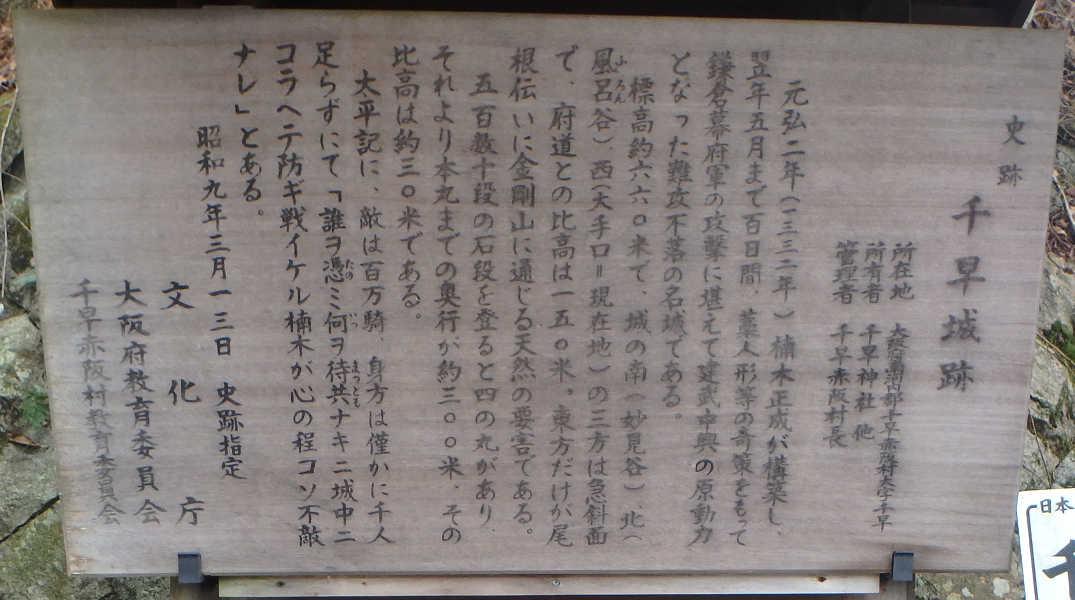 史跡
千早城跡
所在地 大阪府南河内郡千早赤阪村大字千早
所有者 千早神社 他
管理者 千早赤阪村長
元弘二年(一三三二年)楠木正成が構築し、
翌年五月まで百日間、藁人形等の奇策をもって
鎌倉幕府軍の攻撃に堪えて建武中興の原動力
となった難攻不落の名城である。
標高約六六〇米で、城の南(妙見谷)北(
風呂谷)西(大手口=現在地)の三方は急斜面
ふろん
で、府道との比高は一五〇米。東方だけが尾
根伝いに金剛山に通じる天然の要害である。
五百数十段の石段を登ると四の丸があり、
それより本丸までの奥行が約三〇〇米、その
比高は約三〇米である。
太平記に、敵は百万騎、身方は僅かに千人
足らずにて「誰ヲ憑ミ何ヲ待共ナキニ城中ニ
たの
いつ
まつとも
コラヘテ防ギ戦イケル楠木が心の程コソ不敵
ナレ」とある。
昭和九年三月一三日 史跡指定
文化庁
大阪府教育委員会
千早赤阪村教育委員会
日本